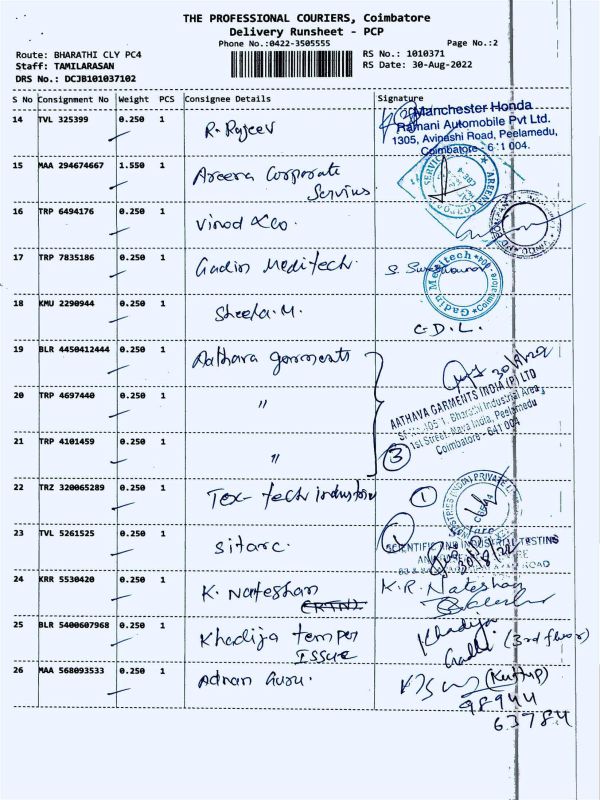 THE PROFESSIONAL COURIERS, Coimbatore
Delivery Runsheet - PCP
Phone No.:0422-3505555
Page No.:2
Route: BHARATHI CLY PC4
RS No.: 1010371
Staff: TAMILARASAN
RS Date: 30-Aug-2022
DRS No.: DCJB101037102
S No Consignment No Weight PCS Consignee Details Signature
14 TVL 325399 0.250 1 R. Rajeev
Manchester Honda
Ramani Automobile Pvt Ltd.
1305, Avinashi Road, Peelamedu,
Coimbatore - 641 004.
15 MAA 294674667 1.550 1 Areera Corporate
Servius
16 TRP 6494176 0.250 1 Vinod & Co.
17 TRP 7835186 0.250 1 Gadin Meditech.
Gadin Meditech
18 KMU 2290944 0.250 1 Sheela. M.
C.D.L.
19 BLR 4450412444 0.250 1 Aathava garments
30/8/22
AATHAVA GARMENTS INDIA (P) LTD
1st Street, Nava India, Peelamedu
Coimbatore - 641 004
20 TRP 4697440 0.250 1 "
21 TRP 4101459 0.250 1 "
3
22 TRZ 320065289 0.250 1 Tex-tech industries
1
23 TVL 5261525 0.250 1 Sitarc.
1
SCIENTIFIC AND INDUSTRIAL TESTING
30/8/22
24 KRR 5530420 0.250 1 K. Nateshan
K.R. Nateshan
25 BLR 5400607968 0.250 1 Khadija temper
Issue
Khadija
(3rd floor)
26 MAA 568093533 0.250 1 Adnan Guru.
98944
63784